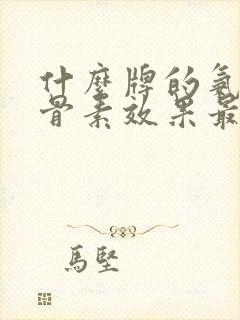 什麼牌的氨
骨素效果最
馬堅